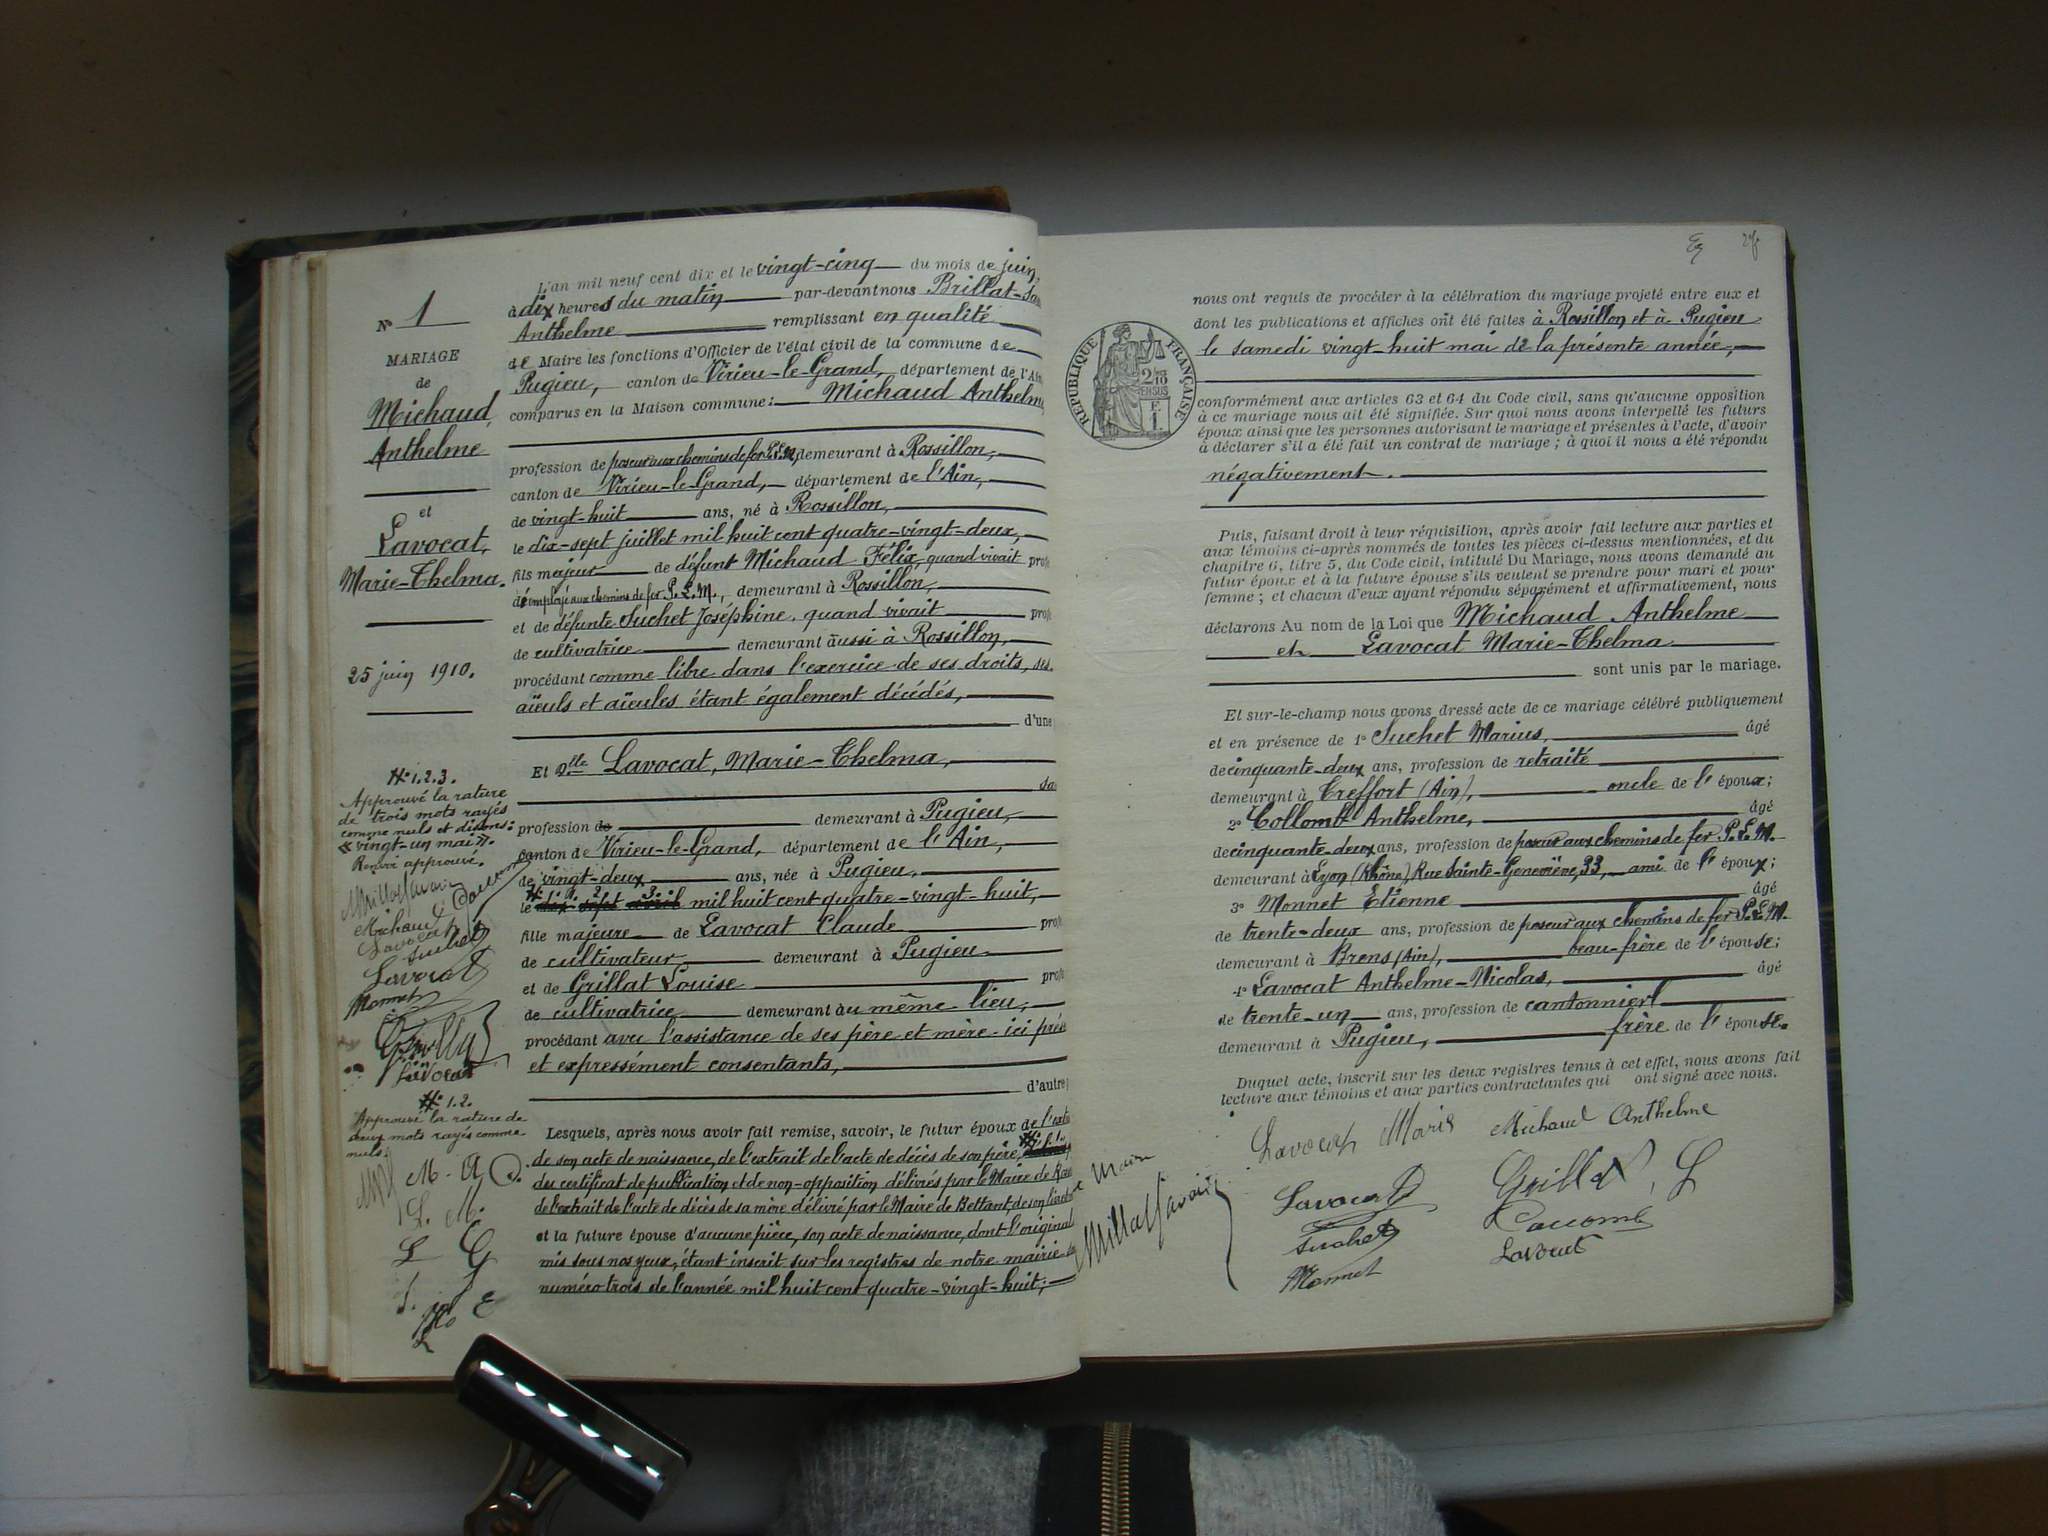 N° 1
MARIAGE
de
Michaud,
Anthelme
et
Lavocat,
Marie-Thelma.
25 juin 1910.
N° 1.2.3.
Approuvé la rature
de trois mots rayés
comme nuls et disons:
« vingt-un mai ».
Renvoi approuvé.
Michaud
Lavocat
Suchet
Lavocat
Monnet
Lavocat
N° 1.2.
Approuvé la rature de
deux mots rayés comme
nuls.
M. A
L. M.
L G
L'an mil neuf cent dix et le vingt-cinq du mois de juin,
à dix heures du matin par-devant nous Brillat-Sa
Anthelme remplissant en qualité
de Maire les fonctions d'Officier de l'état civil de la commune de
Pugieu, canton de Virieu-le-Grand, département de l'Ain
comparus en la Maison commune: Michaud Anthelme
profession de poseur aux chemins de fer P.L.M, demeurant à Rossillon,
canton de Virieu-le-Grand, département de l'Ain,
de vingt-huit ans, né à Rossillon,
le dix-sept juillet mil huit cent quatre-vingt-deux,
fils majeur de défunt Michaud Félix, quand vivait prof
d'employé aux chemins de fer P.L.M., demeurant à Rossillon,
et de défunte Suchet Joséphine, quand vivait prof
de cultivatrice demeurant aussi à Rossillon,
procédant comme libre dans l'exercice de ses droits, ses
aïeuls et aïeules étant également décédés,
d'une
Et Dlle Lavocat, Marie-Thelma,
sa
profession de demeurant à Pugieu,
canton de Virieu-le-Grand, département de l'Ain,
de vingt-deux ans, née à Pugieu,
N° 1. 2 3
le dix sept avril mil huit cent quatre-vingt-huit,
fille majeure de Lavocat Claude prof
de cultivateur demeurant à Pugieu
et de Grillat Louise prof
de cultivatrice demeurant au même lieu,
procédant avec l'assistance de ses père et mère ici prés
et expressément consentants,
d'autre
Lesquels, après nous avoir fait remise, savoir, le futur époux de l'extr
de son acte de naissance, de l'extrait de l'acte de décès de son père,
du certificat de publication et de non-opposition délivrés par le Maire de Ros
de l'extrait de l'acte de décès de sa mère délivré par le Maire de Bettant, de son
et la future épouse d'aucune pièce, son acte de naissance, dont l'original
mis sous nos yeux, étant inscrit sur les registres de notre mairie
numéro trois de l'année mil huit cent quatre-vingt-huit;
RÉPUBLIQUE FRANÇAISE
2/10 EN SUS
F.
1.
nous ont requis de procéder à la célébration du mariage projeté entre eux et
dont les publications et affiches ont été faites à Rossillon et à Pugieu
le samedi vingt-huit mai de la présente année,
conformément aux articles 63 et 64 du Code civil, sans qu'aucune opposition
à ce mariage nous ait été signifiée. Sur quoi nous avons interpellé les futurs
époux ainsi que les personnes autorisant le mariage et présentes à l'acte, d'avoir
à déclarer s'il a été fait un contrat de mariage; à quoi il nous a été répondu
négativement.
Puis, faisant droit à leur réquisition, après avoir fait lecture aux parties et
aux témoins ci-après nommés de toutes les pièces ci-dessus mentionnées, et du
chapitre 6, titre 5, du Code civil, intitulé Du Mariage, nous avons demandé au
futur époux et à la future épouse s'ils veulent se prendre pour mari et pour
femme; et chacun d'eux ayant répondu séparément et affirmativement, nous
déclarons Au nom de la Loi que Michaud Anthelme
et Lavocat Marie-Thelma
sont unis par le mariage.
Et sur-le-champ nous avons dressé acte de ce mariage célébré publiquement
et en présence de 1° Suchet Marius, âgé
de cinquante-deux ans, profession de retraité
demeurant à Treffort (Ain), oncle de l'époux;
2° Collomb Anthelme, âgé
de cinquante-deux ans, profession de poseur aux chemins de fer P.L.M.
demeurant à Lyon (Rhône), Rue Sainte-Geneviève, 33, ami de l'époux;
3° Monnet Etienne âgé
de trente-deux ans, profession de poseur aux chemins de fer P.L.M.
demeurant à Brens (Ain), beau-frère de l'épouse;
4° Lavocat Anthelme-Nicolas, âgé
de trente-un ans, profession de cantonnier
demeurant à Pugieu, frère de l'épouse.
Duquel acte, inscrit sur les deux registres tenus à cet effet, nous avons fait
lecture aux témoins et aux parties contractantes qui ont signé avec nous.
Lavocat Marie Michaud Anthelme
Lavocat Grillat, L
Suchet
Monnet Lavocat
Maire